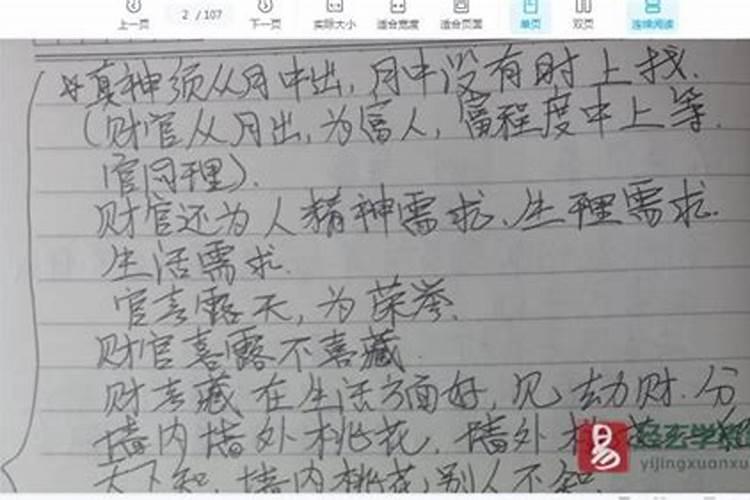 上一页 2 / 107 下一页 实际大小 适合宽度 适合页面 单页 双页 连续阅读
真神须从月中出,月中没有时上找.
(财官从月出,为富人,富程度中上等.
官同理).
财官还为人精神需求、生理需求.
生活需求.
官喜露天,为荣誉.
财官喜露不喜藏.
财喜藏在生活方面好,见劫财.分
墙内墙外桃花,墙外
天下知,墙内桃花,别人不知
易 轻玄学
yijingxuanxu